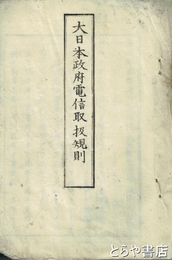 大日本政府電信取扱規則
とらや書店